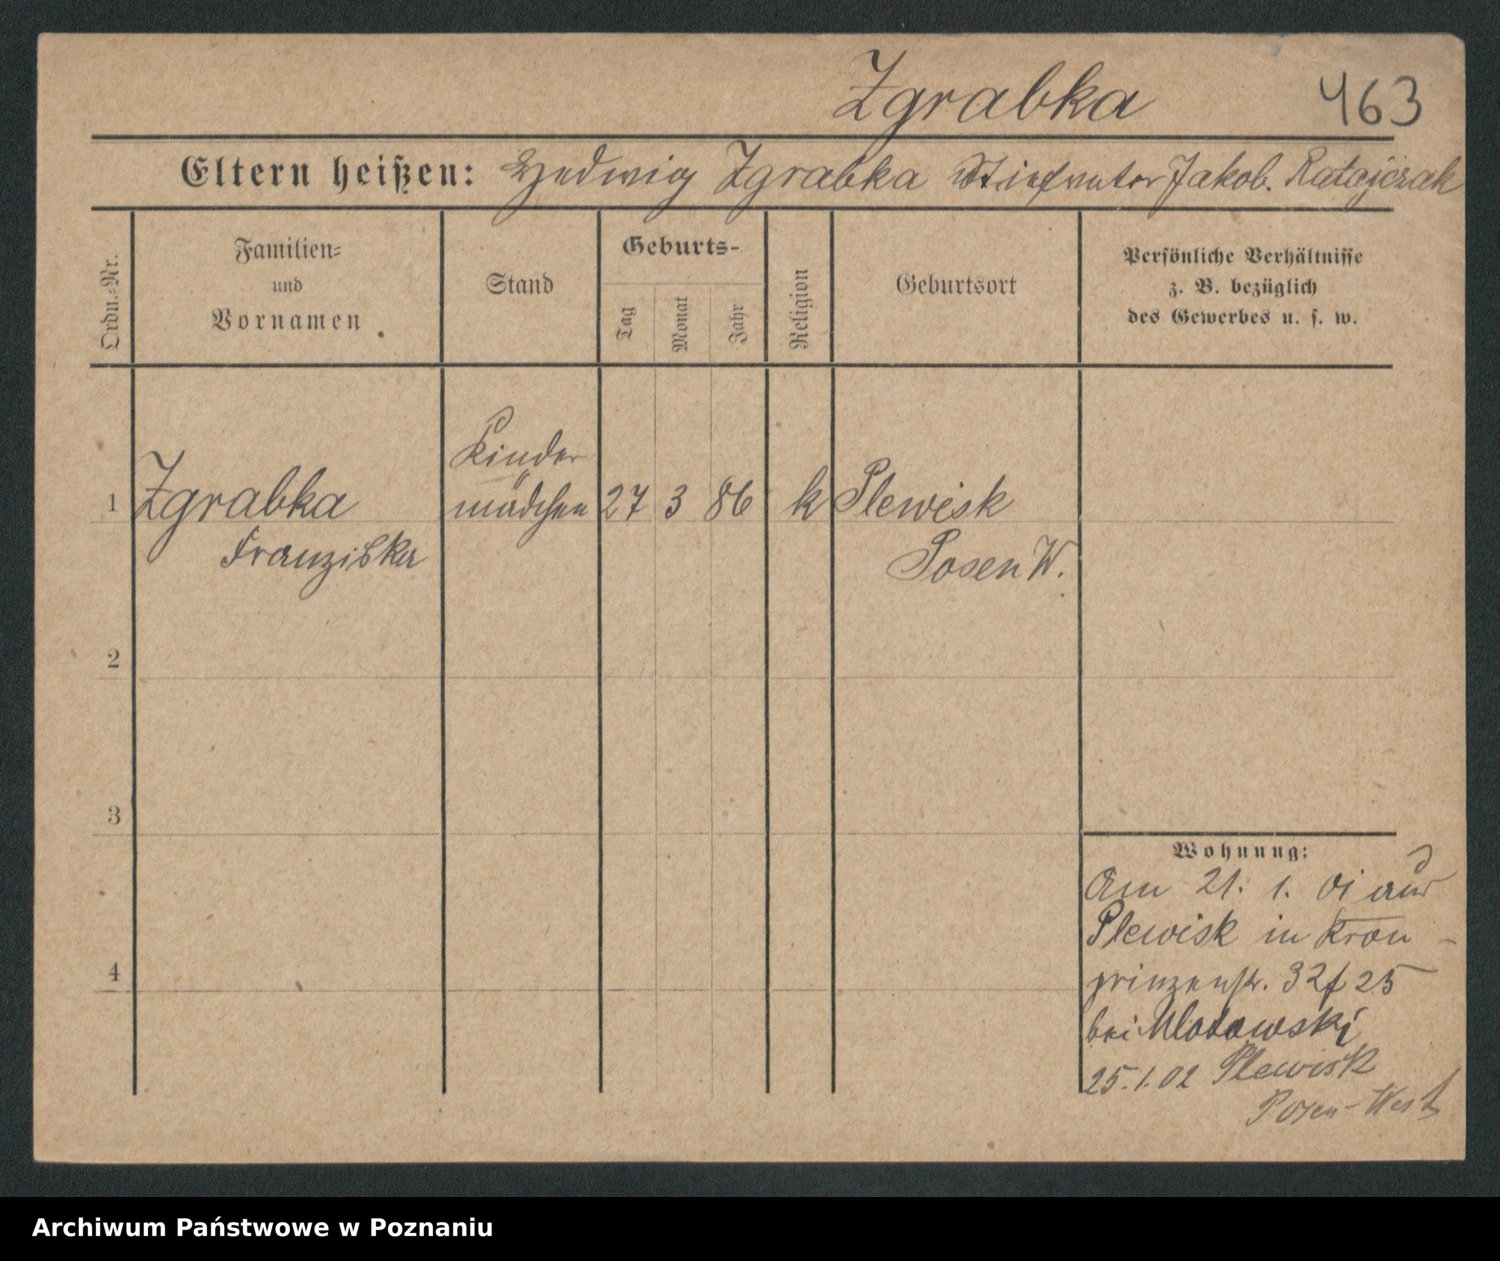 Zgrabka 463
Eltern heißen: Hedwig Zgrabka Stiefvater Jakob. Ratajczak
Ordn.-Nr.
Familien-
und
Vornamen
Stand
Geburts-
Tag
Monat
Jahr
Religion
Geburtsort
Persönliche Verhältnisse
z. B. bezüglich
des Gewerbes u. s. w.
Kinder
1 Zgrabka mädchen 27 3 86 k Plewisk
Franziska Posen W.
2
3
4
Wohnung:
Am 21. 1. 01 aus
Plewisk in Kron-
prinzenstr. 32 f 25
bei Mlodowski
25.1.02 Plewisk
Posen-West
Archiwum Państwowe w Poznaniu